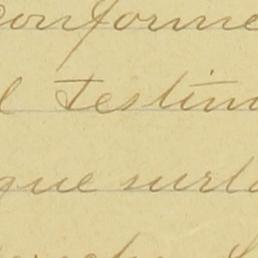 conforme
l testim
que surla